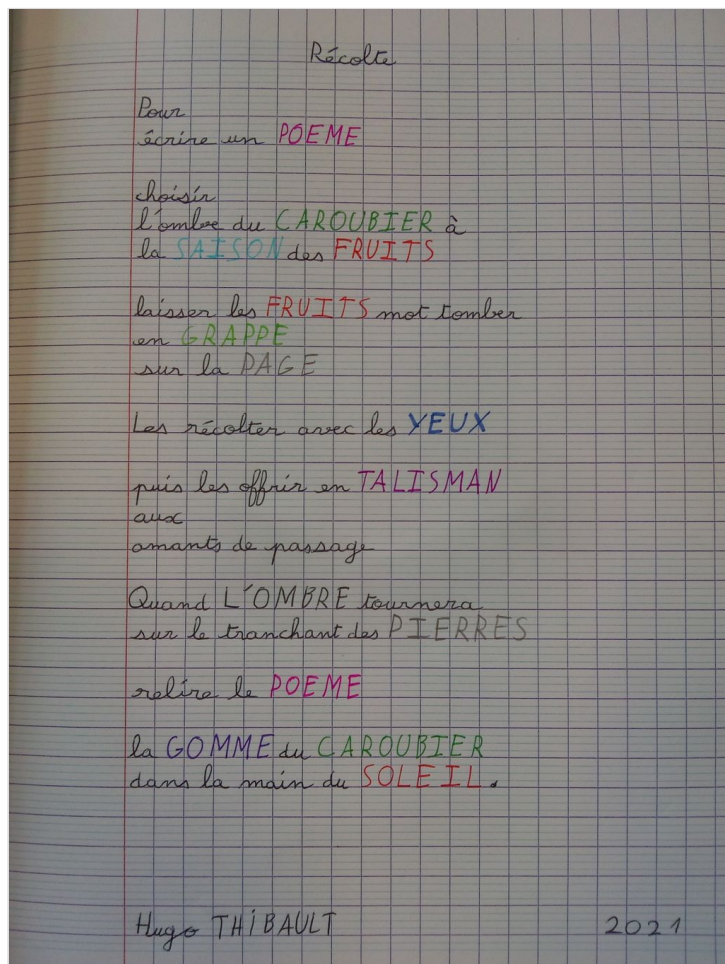 Récolte
Pour
écrire un POEME
choisir
l'ombre du CAROUBIER à
la SAISON des FRUITS
laisser les FRUITS mot tomber
en GRAPPE
sur la PAGE
Les récolter avec les YEUX
puis les offrir en TALISMAN
aux
amants de passage
Quand L'OMBRE tournera
sur le tranchant des PIERRES
relire le POEME
la GOMME du CAROUBIER
dans la main du SOLEIL.
Hugo THIBAULT 2021